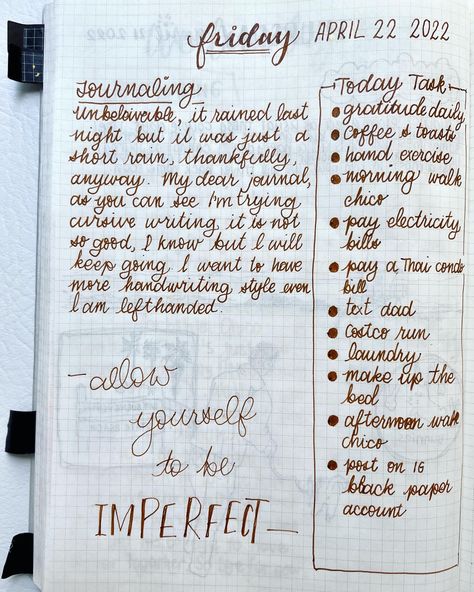 friday APRIL 22 2022
Journaling
Unbeleivable, it rained last
night but it was just a
short rain, thankfully,
anyway. My dear journal,
as you can see I'm trying
cursive writing it is not
so good, I know but I will
keep going. I want to have
more handwriting style even
I am lefthanded.
- allow
yourself
to be
IMPERFECT -
Today Task
gratitude daily
coffee & toasts
hand exercise
morning walk
chico
pay electricity
bills
pay a Thai condo
bill
text dad
Costco run
laundry
make up the
bed
afternoon walk
chico
post on IG
black paper
account